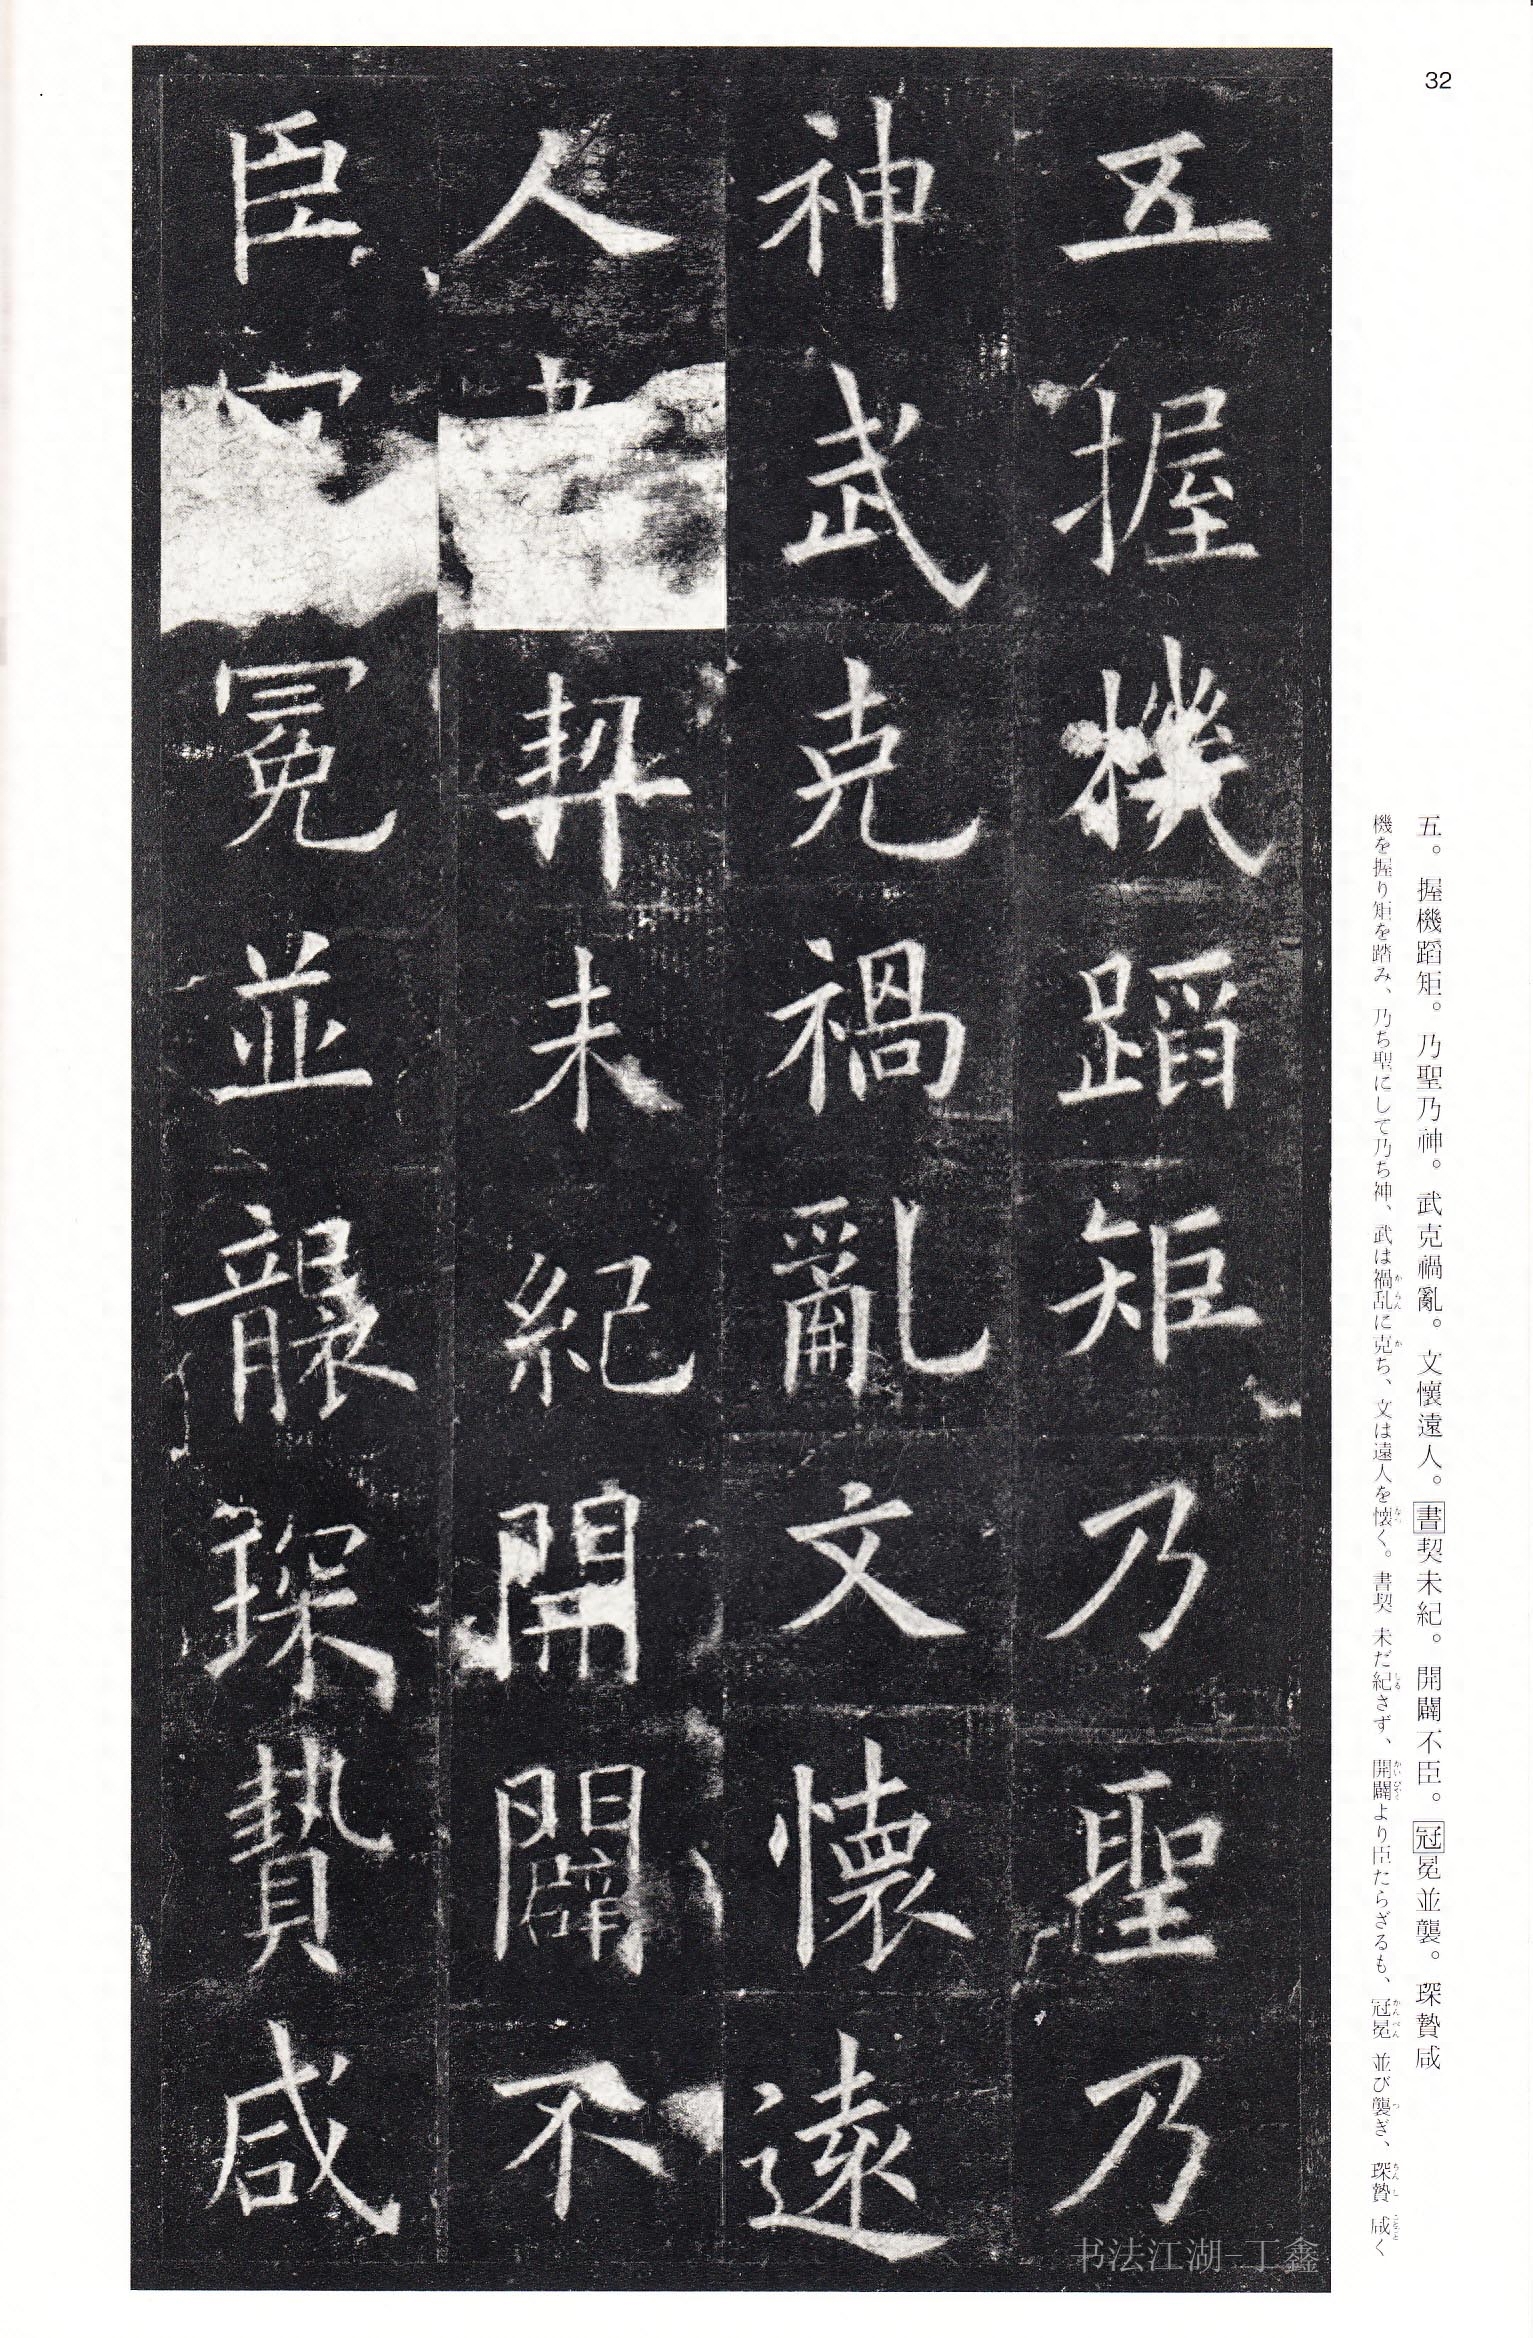 32
五。握機蹈矩。乃聖乃神。武克禍亂。文懷遠人。書契未紀。開闢不臣。冠冕並襲。琛贄咸
機を握り矩を踏み、乃ち聖にして乃ち神、武は禍乱に克ち、文は遠人を懐く。書契 未だ紀さず、開闢より臣たらざるも、冠冕 並び襲ぎ、琛贄 咸く
五握機蹈矩乃聖乃
神武克禍亂文懷遠
人契未紀開闢不
臣冕並襲琛贄咸
书法江湖-丁鑫